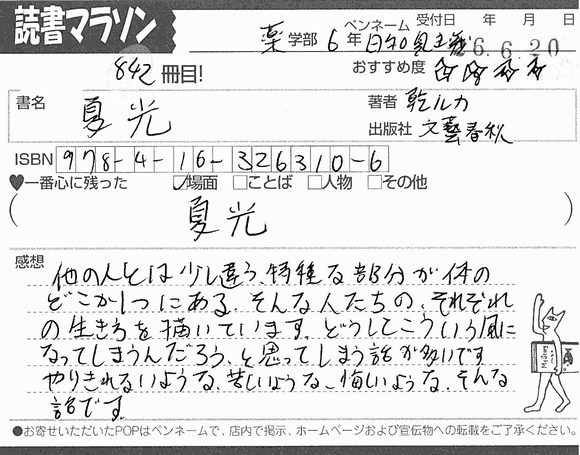 読書マラソン
842冊目!
薬学部 6年 ペンネーム 日和見主義
受付日 年 月 日
26.6.20
おすすめ度
書名 夏光
著者 乾ルカ
出版社 文藝春秋
ISBN 978-4-16-326310-6
♥一番心に残った ☑場面 □ことば □人物 □その他
(夏光)
感想
他の人とは少し違う、特種な部分が体の
どこか1つにある、そんな人たちの、それぞれ
の生き方を描いています。どうしてこういう風に
なってしまうんだろう、と思ってしまう話が多いです
やりきれないような、苦しいような、悔しいような、そんな
話です。
●お寄せいただいたPOPはペンネームで、店内で掲示、ホームページおよび宣伝物への転載をご了承ください。